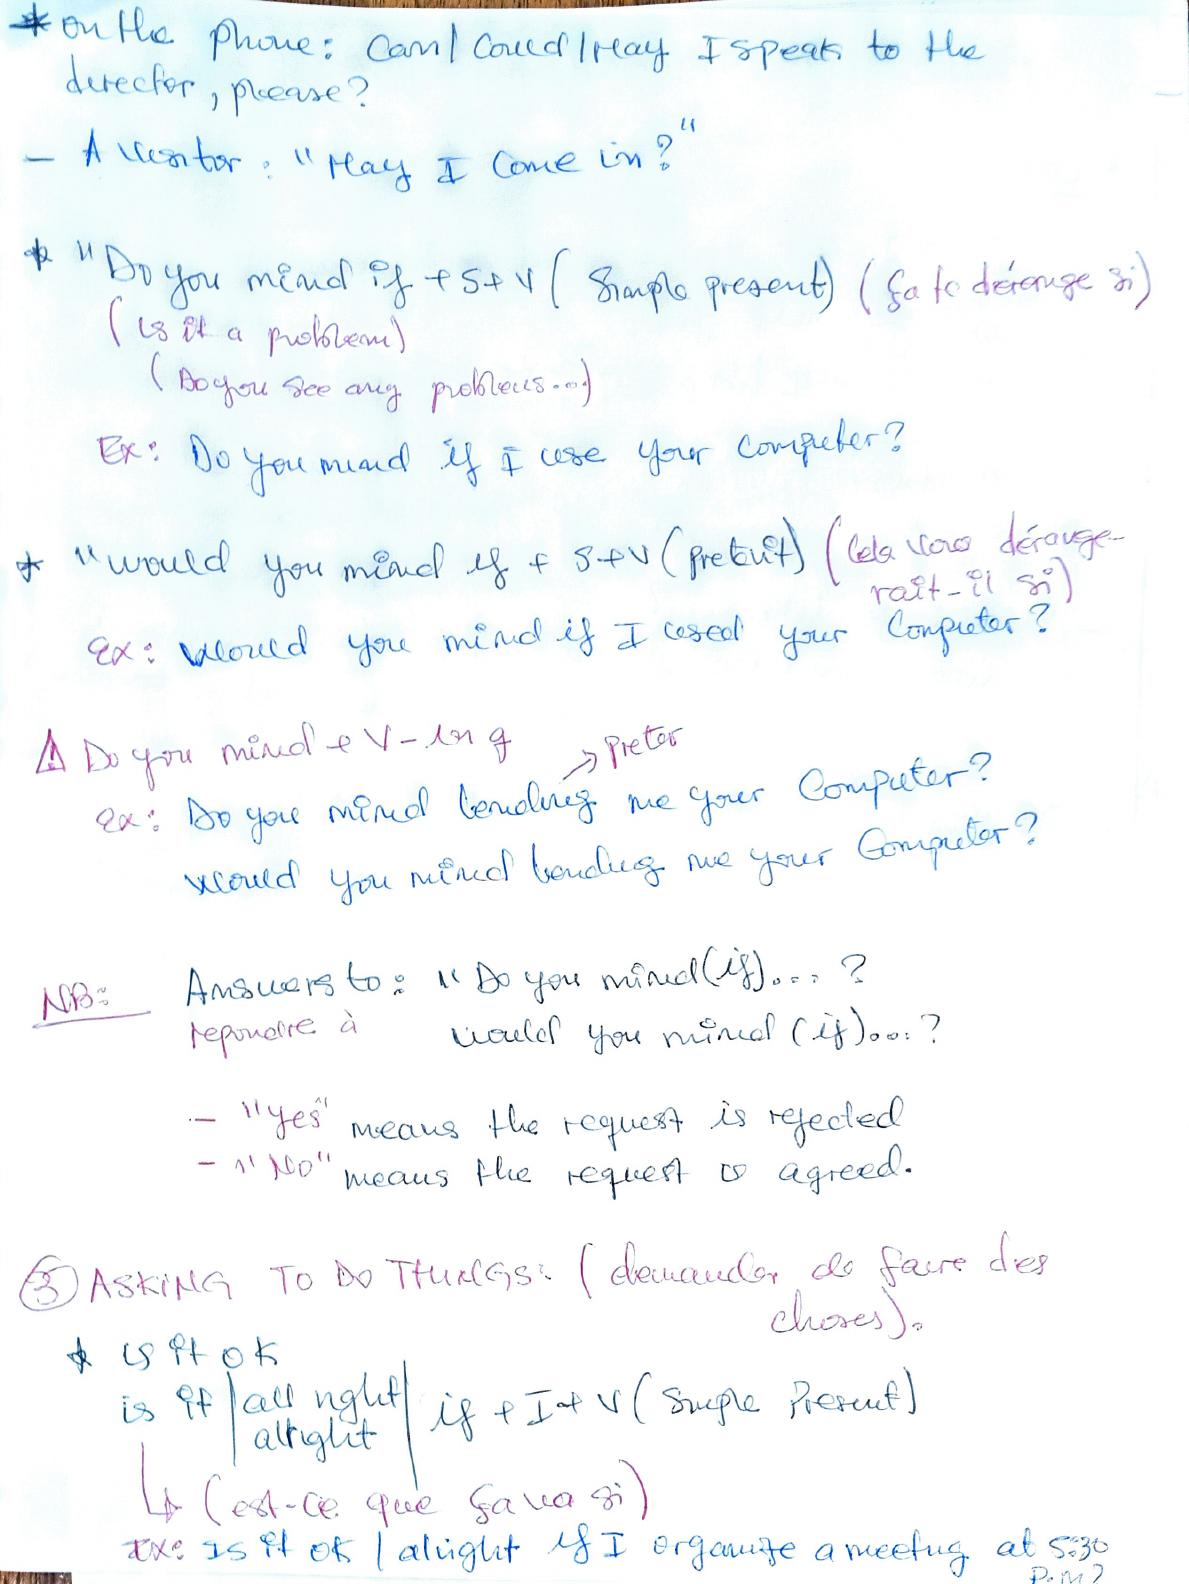 * on the phone: Can/Could/May I speak to the
director, please?
- A visitor: "May I come in?"
* "Do you mind if + S + V (Simple present) (ça te dérange si)
(is it a problem)
(Do you see any problems...)
Ex: Do you mind if I use your computer?
* "would you mind if + S + V (preterit) (Cela vous dérange-
rait-il si)
Ex: Would you mind if I used your Computer?
⚠ Do you mind + V-ing → Preter
Ex: Do you mind lending me your Computer?
Would you mind lending me your Computer?
NB: Answers to: "Do you mind (if)...?
repondre à would you mind (if)...?
- "Yes" means the request is rejected
- "No" means the request is agreed.
③ ASKING TO DO THINGS: (demander de faire des
choses).
* is it ok
is it | all right | if + I + V (Simple Present)
alright
↳ (est-ce que ça va si)
Ex: Is it ok / alright if I organize a meeting at 5:30
P.M?